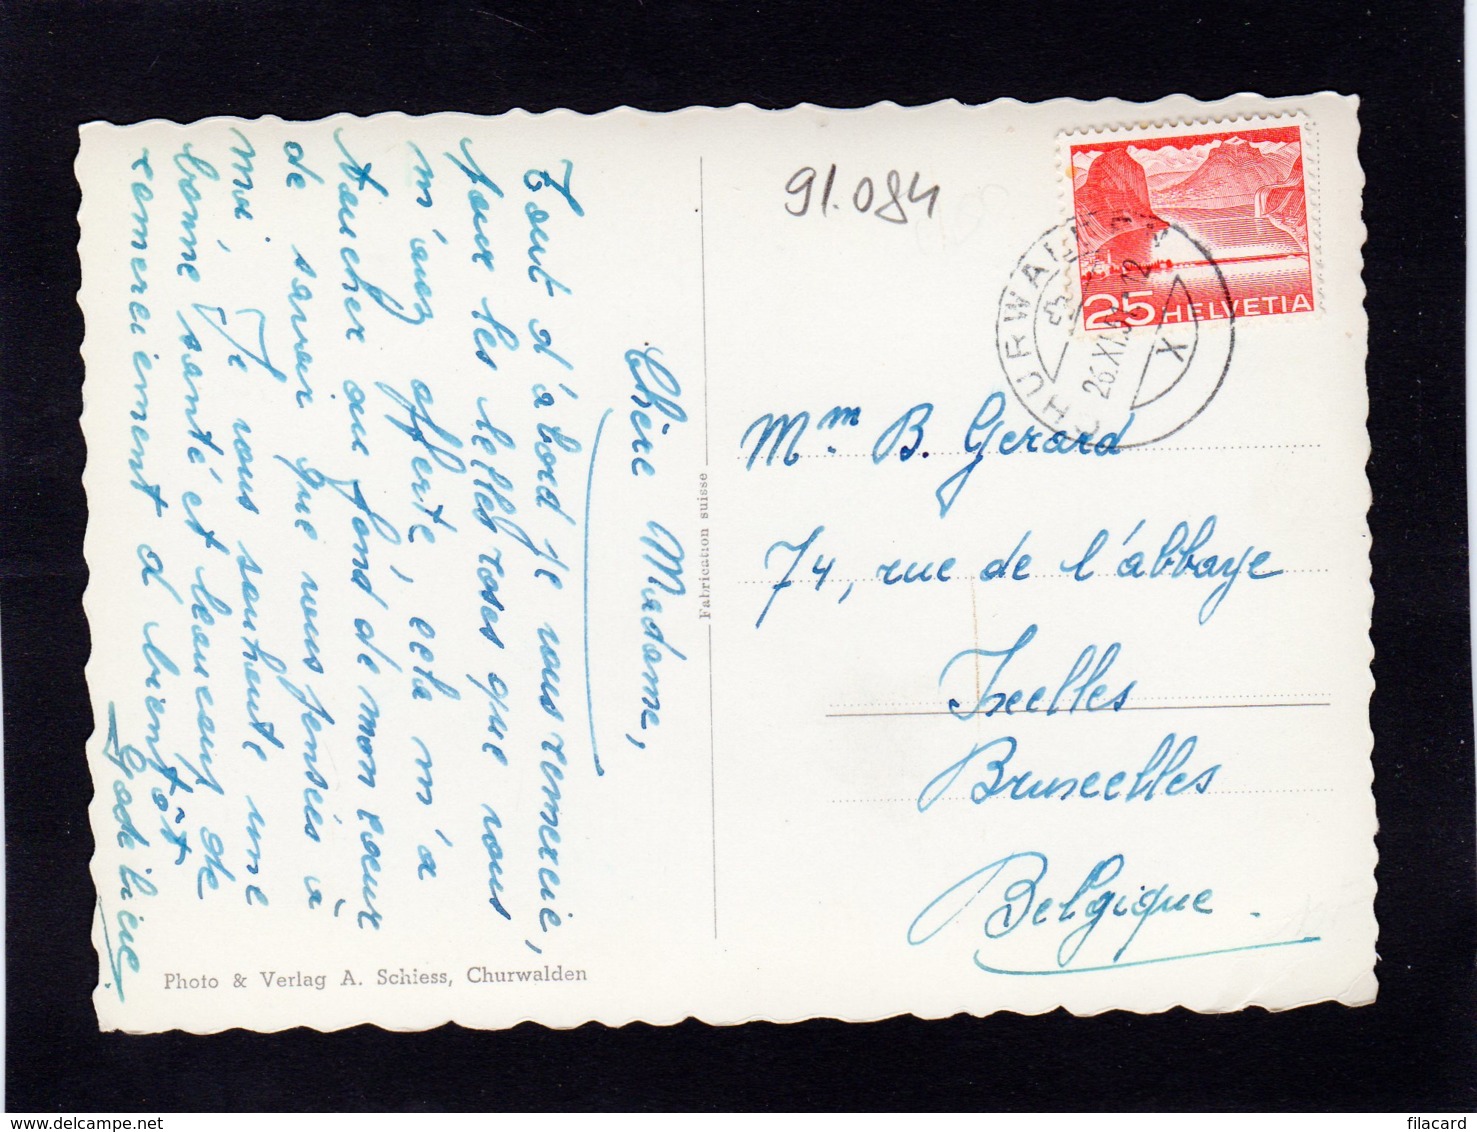 Chère Madame,
Tout d'abord je vous remercie,
pour les belles roses que vous
m'avez offerte, cela m'a
toucher au fond de mon cœur
de savoir que vous pensiez à
moi. Je vous souhaite une
bonne santé et beaucoup de
remerciement d bientôt
91.084
25 HELVETIA
CHURWALDEN
26.XI.5
12
X
Mme B. Gerard
74, rue de l'abbaye
Ixelles
Bruxelles
Belgique.
Fabrication suisse
Photo & Verlag A. Schiess, Churwalden
www.delcampe.net
filacard